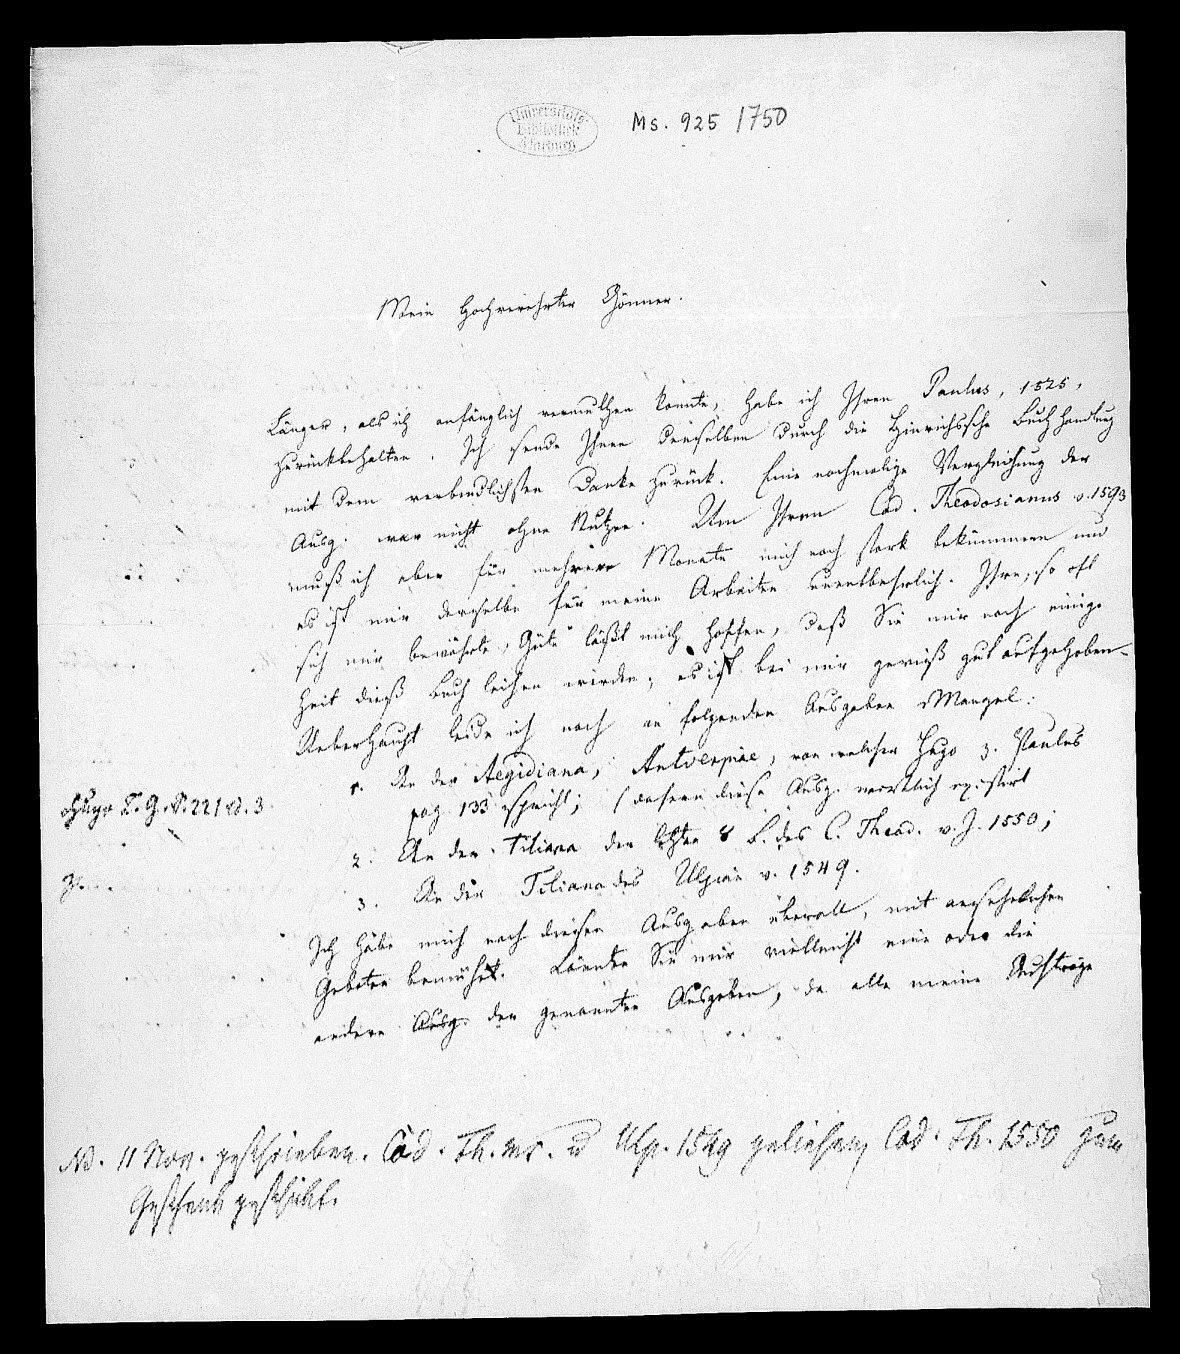 Universitäts-
Bibliothek
Marburg
Ms. 925/1750
Mein Hochverehrter Gönner.
Länger, als ich anfänglich vermuthen konnte, habe ich Ihren Paulus, 1525,
zurückbehalten. Ich sende Ihnen denselben durch die Hinrichssche Buchhandlung
mit dem verbindlichsten Danke zurück. Eine nochmalige Vergleichung der
Ausg. war nicht ohne Nutzen. Um Ihren Cod. Theodosianus v. 1593
muß ich aber für mehrere Monate mich noch stark bekümmern und
es ist mir derselbe für meine Arbeiten unentbehrlich. Ihre, so oft
sich mir bewährte, Güte läßt mich hoffen, daß Sie mir noch einige
Zeit dieß Buch leihen würden; es ist bei mir gewiß gut aufgehoben.
Ueberhaupt leide ich noch an folgenden Ausgaben Mangel:
1. An der Aegidiana, Antverpiae, von welcher Hugo z. Paulus
pag. 133 spricht; (dafern diese Ausg. wirklich existirt
Hugo L. G. S. 221 d. 3.
2. An der Tiliana der letzten 8 B. des C. Theod. v. J. 1550;
3. An der Tiliana des Ulpian v. 1549.
Ich habe mich nach diesen Ausgaben überall, mit ansehnlichen
Geboten bemühet. Könnten Sie mir vielleicht eine oder die
andere Ausg. der genannten Ausgaben, da alle meine Aufträge
Nb. 11 Nov. geschrieben. Cod. Th. ms. u Ulp. 1549 geliehen, Cod. Th. 1550 zum
Geschenk geschickt.